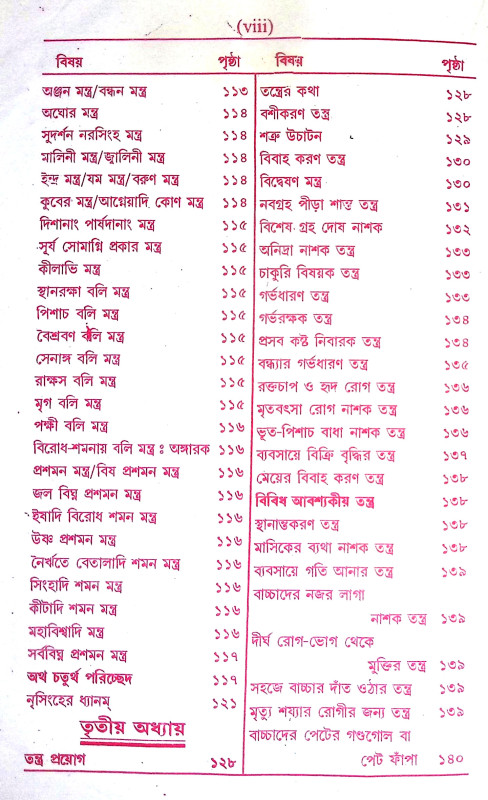 (viii)
বিষয় পৃষ্ঠা
অঞ্জন মন্ত্র/বন্ধন মন্ত্র ১১৩
অঘোর মন্ত্র ১১৪
সুদর্শন নরসিংহ মন্ত্র ১১৪
মালিনী মন্ত্র/জ্বালিনী মন্ত্র ১১৪
ইন্দ্র মন্ত্র/যম মন্ত্র/বরুণ মন্ত্র ১১৪
কুবের মন্ত্র/আগ্নেয়াদি কোণ মন্ত্র ১১৪
দিশানাং পার্ষদানাং মন্ত্র ১১৫
সূর্য সোমাগ্নি প্রকার মন্ত্র ১১৫
কীলাভি মন্ত্র ১১৫
স্থানরক্ষা বলি মন্ত্র ১১৫
পিশাচ বলি মন্ত্র ১১৫
বৈশ্রবণ বলি মন্ত্র ১১৫
সেনাঙ্গ বলি মন্ত্র ১১৫
রাক্ষস বলি মন্ত্র ১১৫
মৃগ বলি মন্ত্র ১১৫
পক্ষী বলি মন্ত্র ১১৬
বিরোধ-শমনায় বলি মন্ত্র ঃ অঙ্গারক ১১৬
প্রশমন মন্ত্র/বিষ প্রশমন মন্ত্র ১১৬
জল বিঘ্ন প্রশমন মন্ত্র ১১৬
ইষাদি বিরোধ শমন মন্ত্র ১১৬
উষ্ণ প্রশমন মন্ত্র ১১৬
নৈর্ঋতে বেতালাদি শমন মন্ত্র ১১৬
সিংহাদি শমন মন্ত্র ১১৬
কীটাদি শমন মন্ত্র ১১৬
মহাবিশ্বাদি মন্ত্র ১১৬
সর্ববিঘ্ন প্রশমন মন্ত্র ১১৭
অথ চতুর্থ পরিচ্ছেদ ১১৭
নৃসিংহের ধ্যানম্ ১২১
তৃতীয় অধ্যায়
তন্ত্র প্রয়োগ ১২৮
বিষয় পৃষ্ঠা
তন্ত্রের কথা ১২৮
বশীকরণ তন্ত্র ১২৮
শত্রু উচাটন ১২৯
বিবাহ করণ তন্ত্র ১৩০
বিদ্বেষণ মন্ত্র ১৩০
নবগ্রহ পীড়া শান্ত তন্ত্র ১৩১
বিশেষ গ্রহ দোষ নাশক ১৩২
অনিদ্রা নাশক তন্ত্র ১৩৩
চাকুরি বিষয়ক তন্ত্র ১৩৩
গর্ভধারণ তন্ত্র ১৩৩
গর্ভরক্ষক তন্ত্র ১৩৪
প্রসব কষ্ট নিবারক তন্ত্র ১৩৪
বন্ধ্যার গর্ভধারণ তন্ত্র ১৩৫
রক্তচাপ ও হৃদ রোগ তন্ত্র ১৩৬
মৃতবৎসা রোগ নাশক তন্ত্র ১৩৬
ভূত-পিশাচ বাধা নাশক তন্ত্র ১৩৬
ব্যবসায়ে বিক্রি বৃদ্ধির তন্ত্র ১৩৭
মেয়ের বিবাহ করণ তন্ত্র ১৩৮
বিবিধ আবশ্যকীয় তন্ত্র ১৩৮
স্থানান্তকরণ তন্ত্র ১৩৮
মাসিকের ব্যথা নাশক তন্ত্র ১৩৮
ব্যবসায়ে গতি আনার তন্ত্র ১৩৯
বাচ্চাদের নজর লাগা
নাশক তন্ত্র ১৩৯
দীর্ঘ রোগ-ভোগ থেকে
মুক্তির তন্ত্র ১৩৯
সহজে বাচ্চার দাঁত ওঠার তন্ত্র ১৩৯
মৃত্যু শয্যার রোগীর জন্য তন্ত্র ১৩৯
বাচ্চাদের পেটের গণ্ডগোল বা
পেট ফাঁপা ১৪০